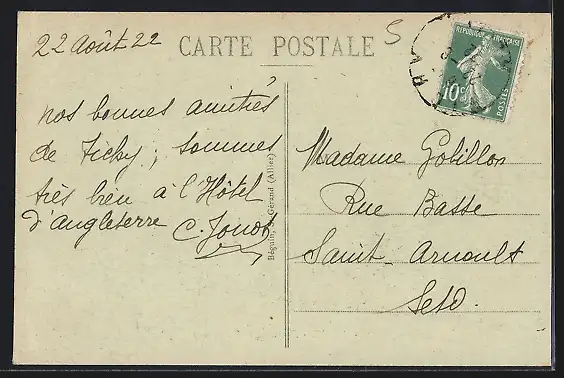 22 Août 22
CARTE POSTALE
S
REPUBLIQUE FRANÇAISE
10c
POSTES
nos bonnes amitiés
de Vichy ; sommes
très bien à l'Hôtel
d'Angleterre
Béguin, Gérand (Allier)
Madame Gobillon
Rue Basse
Saint-Arnoult